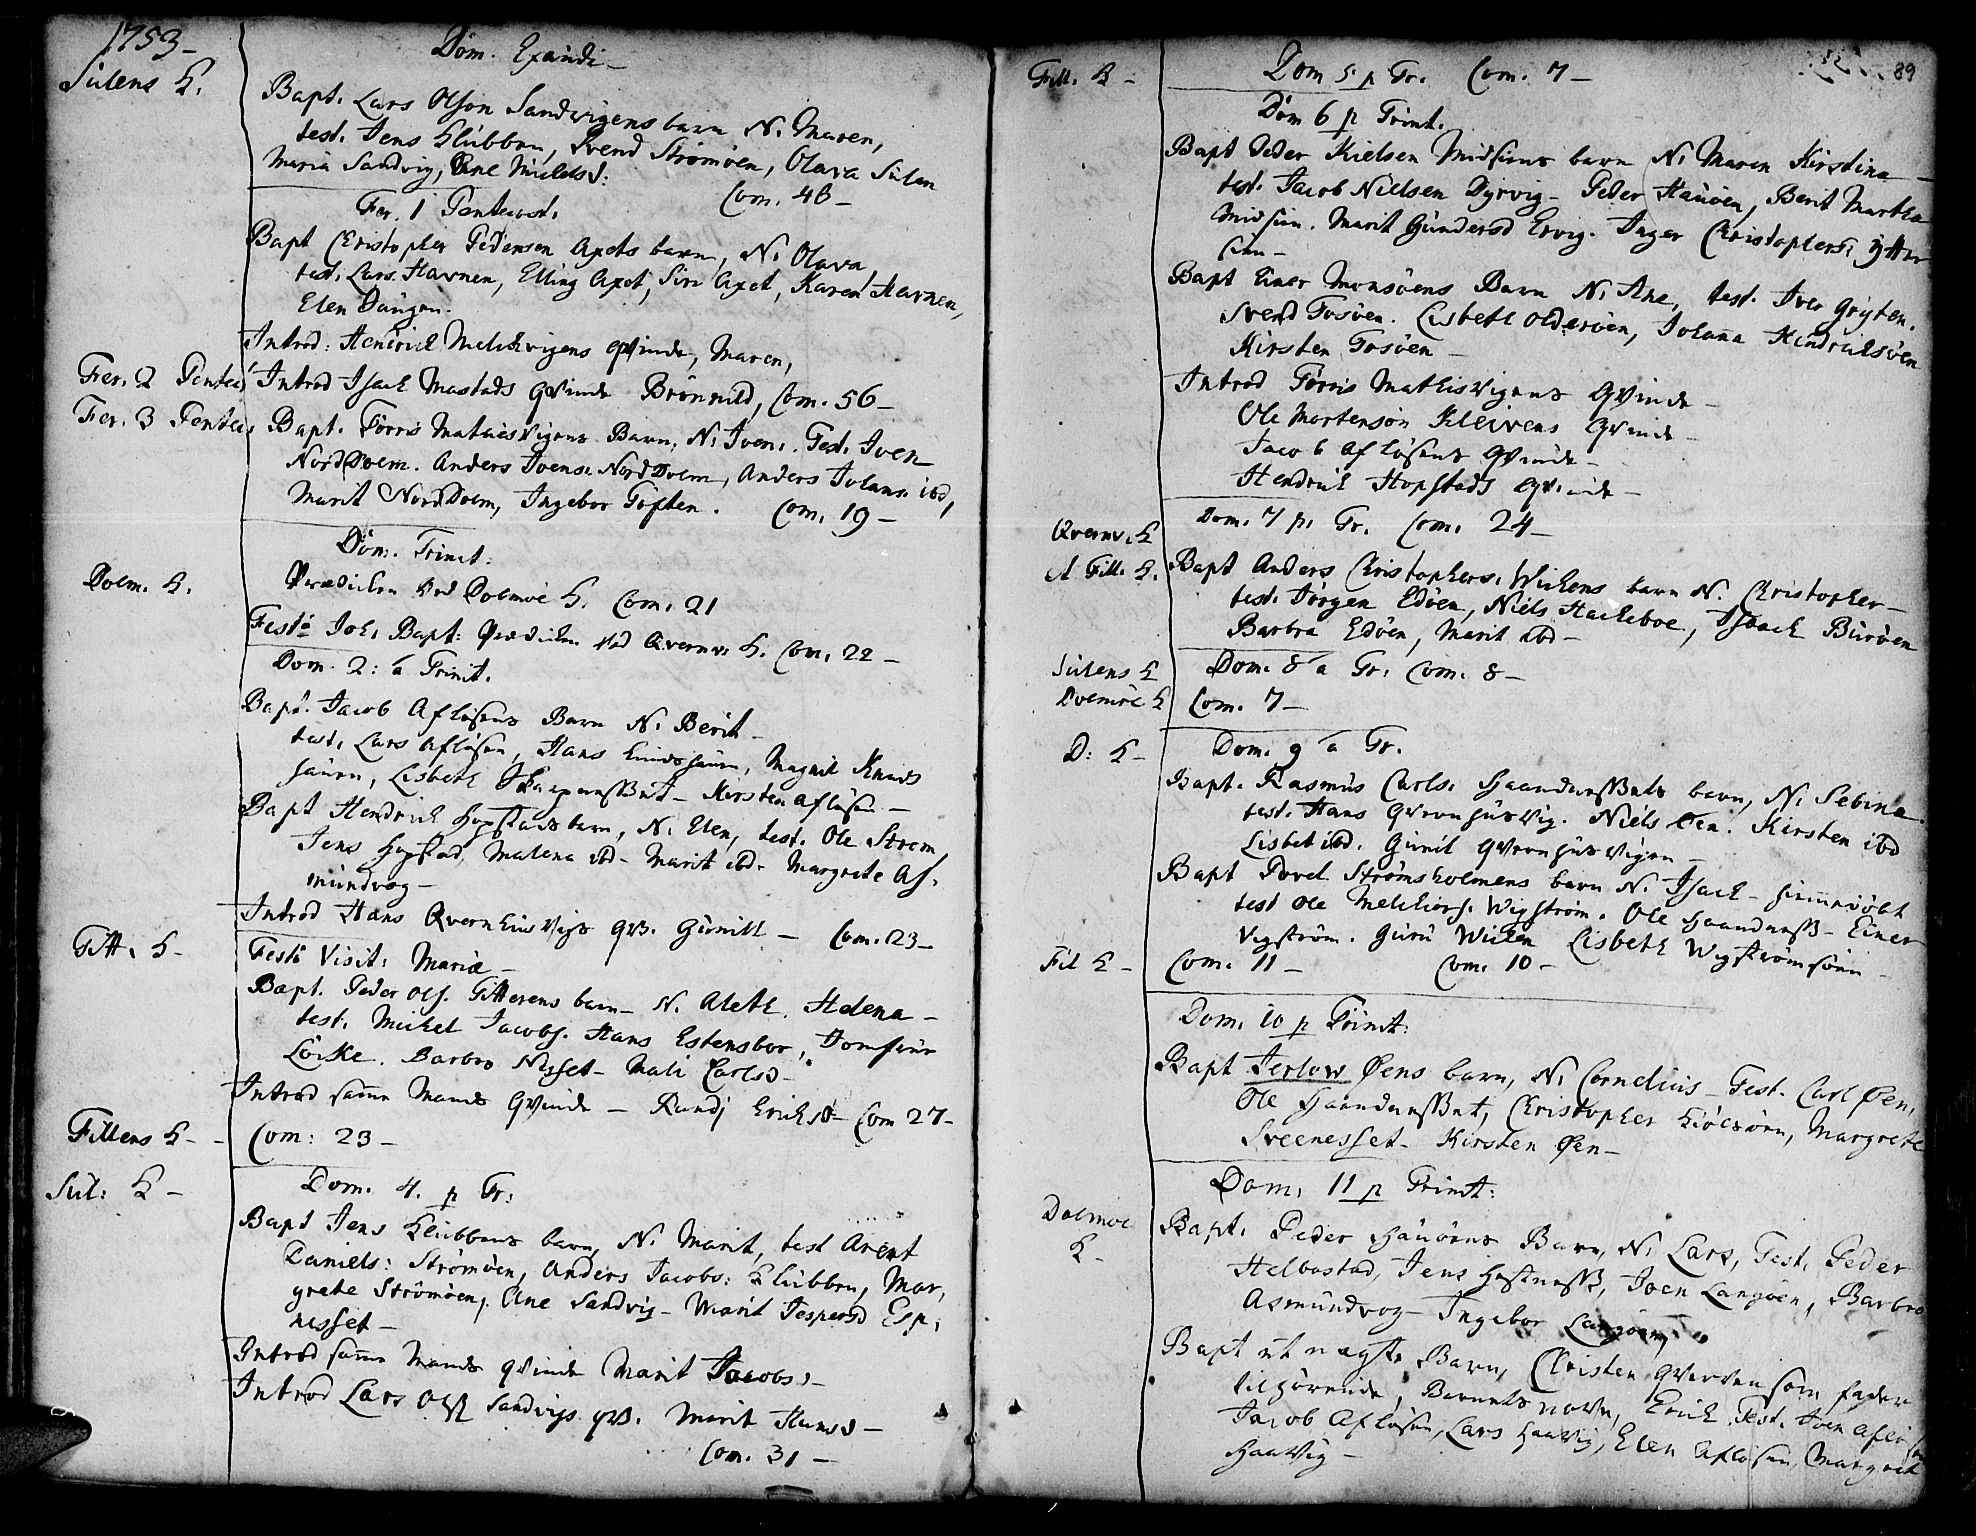 1753 –
Sulens K.
Dom. Exaudi –
Bapt. Lars Olson Sandvigens barn N. Maren,
test. Jens Klubben, Svend Strømøen, Olava Sulen
Maria Sandvig, Ane Michelsd:
Com. 46 –
Fer. 1 Pentecost.
Bapt Christopher Pedersen Axets barn, N. Olava,
test. Lars Havnen, Elling Axet, Siri Axet, Karen Havnen,
Elen Dungen.
Introd: Henrich Melchvigens qvinde, Maren,
Fer. 2 Pentec
Introd Isach Mastads qvinde Brønnild, Com. 56 –
Fer. 3 Pentec
Bapt. Tørris Mathiesvigens Barn, N. Iven. Test. Iven
NordDolm. Anders Ivens. NordDolm, Anders Johans. ibd,
Marit NordDolm, Ingebor Tøften. Com. 19 –
Dom. Trinit:
Dolm. K.
Prædiken ved Dolmøe K. Com. 21
Festo Joh. Bapt: Prædiken ved Qvernv. K. Com. 22 –
Dom. 2: a Trinit.
Bapt. Jacob Afløsens Barn N. Berit –
test. Lars Afløsen, Hans Knudshaun, Magnil Knuds
haun, Lisbeth Skarpenssent – Kirsten Afløsen –
Bapt Hendrich Hopstads barn, N. Elen, test. Ole Strøm
Jens Hopstad, Malena ibd – Marit ibd – Margrete As,
mundvog –
Introd Hans Qvernhusvigs qv. Gunill – Com. 23 –
Titt. K –
Festo Visit. Mariæ –
Bapt. Peder Ols. Titterens barn – N. Aleth Helena –
test. Michel Jacobs. Hans Estensboe, Jomfrue
Löcke. Barbro Nesset – Mali Carlsd –
Introd samme Mands Qvinde – Randj Erichsd – Com 27 –
Fillens K –
Com: 23 –
Sul: K –
Dom. 4. p Tr:
Bapt Jens Klubbens barn, N. Marit, test Arent
Daniels: Strømøen, Anders Jacobs: Klubben, Mar,
grete Strømøen, Ane Sandvig – Marit Jespersd Esp,
nesset –
Introd samme Mands qvinde Marit Jacobs. –
Introd Lars Ols. Sandvigs qv. Marit Hansd –
Com. 31 –
89
Fill. K –
Dom 5 p Tr. Com. 7 –
Dom 6 p Trinit.
Bapt Peder Nielsen Midsiens barn N. Maren Kirstina –
test. Jacob Nielsen Dyrvig – Peder Hauøen, Berit Martha
Midsien. Marit Gundersd Ervig. Inger Christophers. Ytter
sien –
Bapt Einer Monsøens Barn N. Ane, test. Iver Gryten.
Svend Fosøen. Lisbeth Olderøen, Johanna Hendrichsøen
Kirsten Fosøen –
Introd Tørris Mathisvigens Qvinde –
Ole Mortensøn Kleivens Qvinde –
Jacob Afløsens Qvinde –
Hendrich Hopstads qvinde –
Qvernv. K
Dom. 7 p. Tr. Com. 24 –
A Fill. K.
Bapt Anders Christophers. Wichens barn N. Christopher –
test. Jørgen Edøen, Niels Hacheboe, Isaach Burøen
Barbra Edøen, Marit ibd –
Sulens K
Dom. 8 a Tr. Com. 8 –
Dolmøe K
Com. 7 –
D: K –
Dom. 9 a Tr.
Bapt. Rasmus Carls. Haandenssents barn, N. Sebina.
test. Hans Qvernhusvig. Niels Øen. Kirsten ibd
Lisbet ibd. Gunil Qvernhusvigen –
Bapt Povel Strømsholmens barn N. Isach – hiemmedøbt
test Ole Melchiors. Wigstrøm. Ole Haandenss – Einer
Vigstrøm. Guru Wichen Lisbeth Wigstrømsøen –
Fil K –
Com. 11 – Com. 10 –
Dom. 10 p Trinit:
Bapt Jerlow Øens barn, N. Cornelius – Test. Carl Øen,
Ole Haandenssent, Christopher Kiølsøen, Margrete
Sveenesset – Kirsten Øen –
Dom. 11 p Trinit:
Dolmøe
K –
Bapt. Peder Hauøens Barn, N. Lars, Test. Peder
Helbostad, Jens Hestness, Joen Langøen, Barbro
Asmundvog – Ingebor Langøen
Bapt et uægte Barn, Christen Qverven som fader
tilhørende, Barnets navn, Erich. Test. Iven Afløsen
Jacob Afløsen, Lars Haavig, Elen Afløsen, Margret
Haavig –